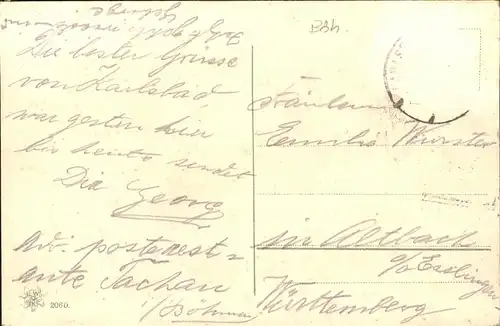 Die besten Grüsse
von Karlsbad,
war gestern hier
bin heute sendet
Dir Georg
Adr. posterest=
ante Tachau
i/Böhmen
2060.
334
Fräulein
Emilie Wurster
in Altbach
o/a Esslingen
Württemberg